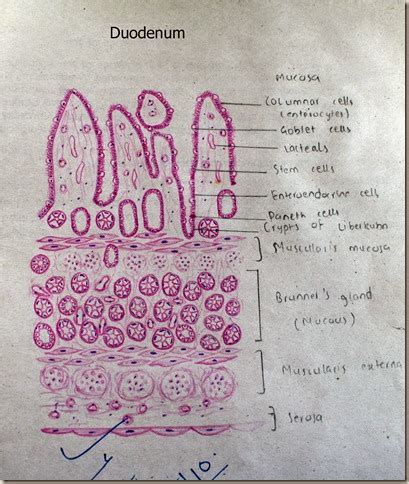 Duodenum
Mucosa
Columnar cells
(enterocytes)
Goblet cells
Lacteals
Stem cells
Enteroendocrine cell
Paneth cells
Crypts of Liberkuhn
Muscularis mucosa
Brunner's gland
(Mucous)
Muscularis externa
Serosa